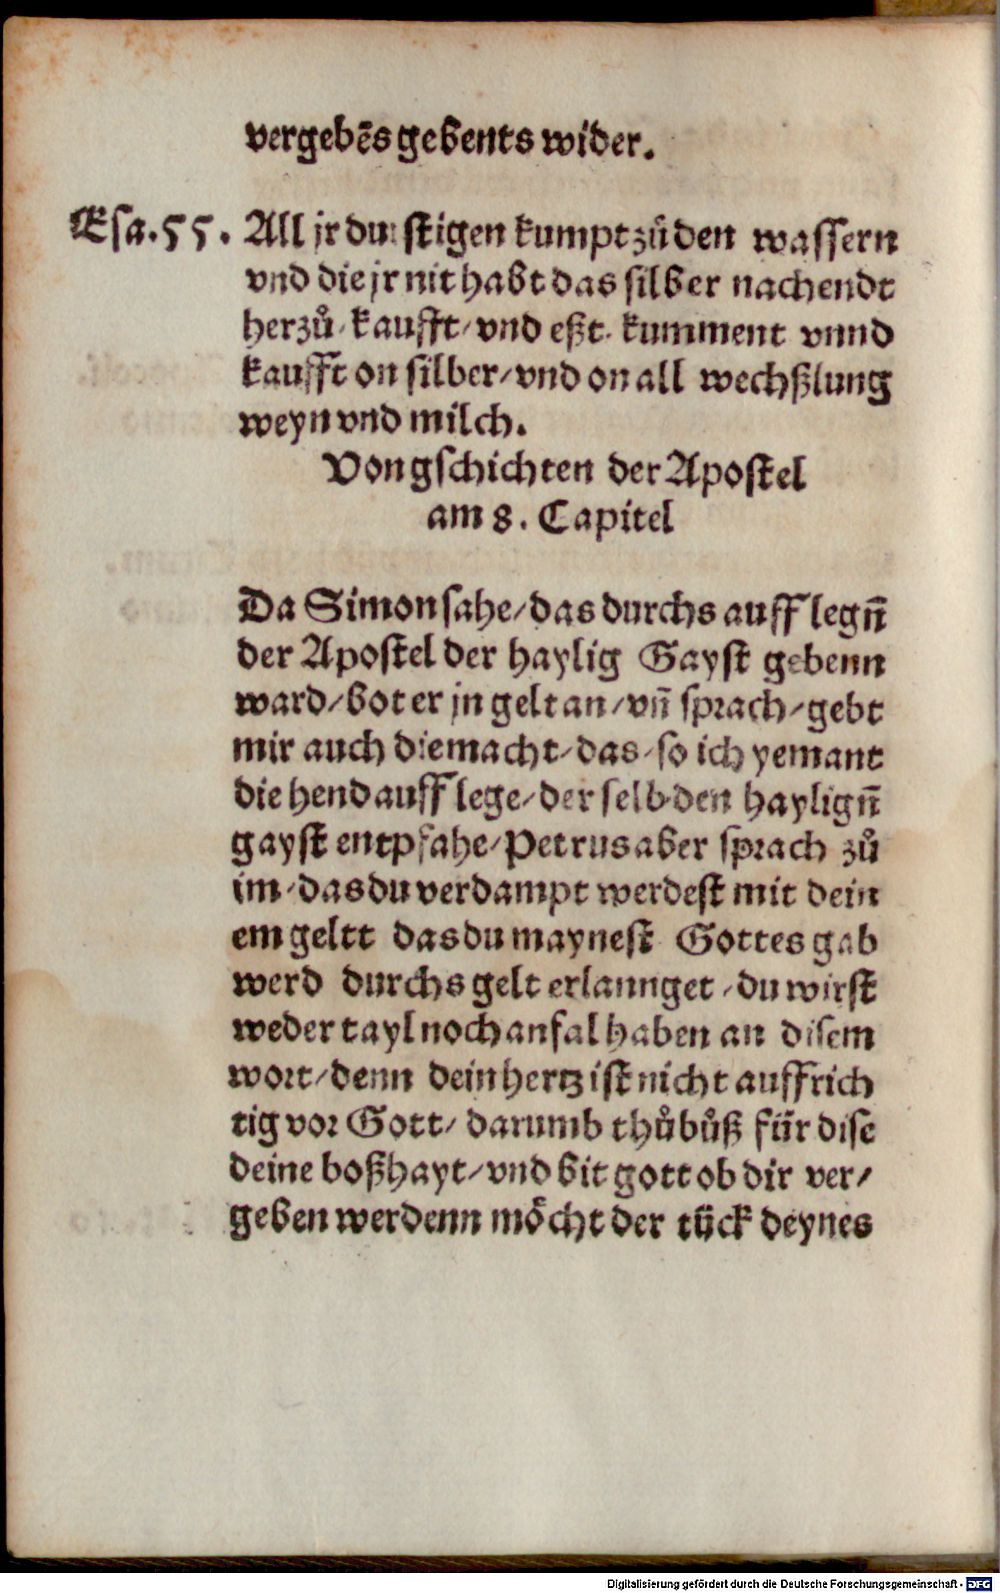 vergebēs gebents wider.
Esa.55. All jr durstigen kumpt zů den wassern
vnd die jr nit habt das silber nachendt
herzů/ kaufft/ vnd eßt. kumment vnnd
kaufft on silber/ vnd on all wechßlung
weyn vnd milch.
Von gschichten der Apostel
am 8. Capitel
Da Simon sahe/ das durchs auff legn̄
der Apostel der haylig Gayst gebenn
ward/ bot er jn gelt an/ vn̄ sprach/ gebt
mir auch die macht/ das/ so ich yemant
die hend auff lege/ der selb den haylign̄
gayst entpfahe/ Petrus aber sprach zů
im/ das du verdampt werdest mit dein
em geltt das du maynest Gottes gab
werd durchs gelt erlannget/ du wirst
weder tayl noch anfal haben an disem
wort/ denn dein hertz ist nicht auffrich
tig vor Gott/ darumb thů bůß für dise
deine boßhayt/ vnd bit gott ob dir ver/
geben werdenn möcht der tück deynes
Digitalisierung gefördert durch die Deutsche Forschungsgemeinschaft - DFG